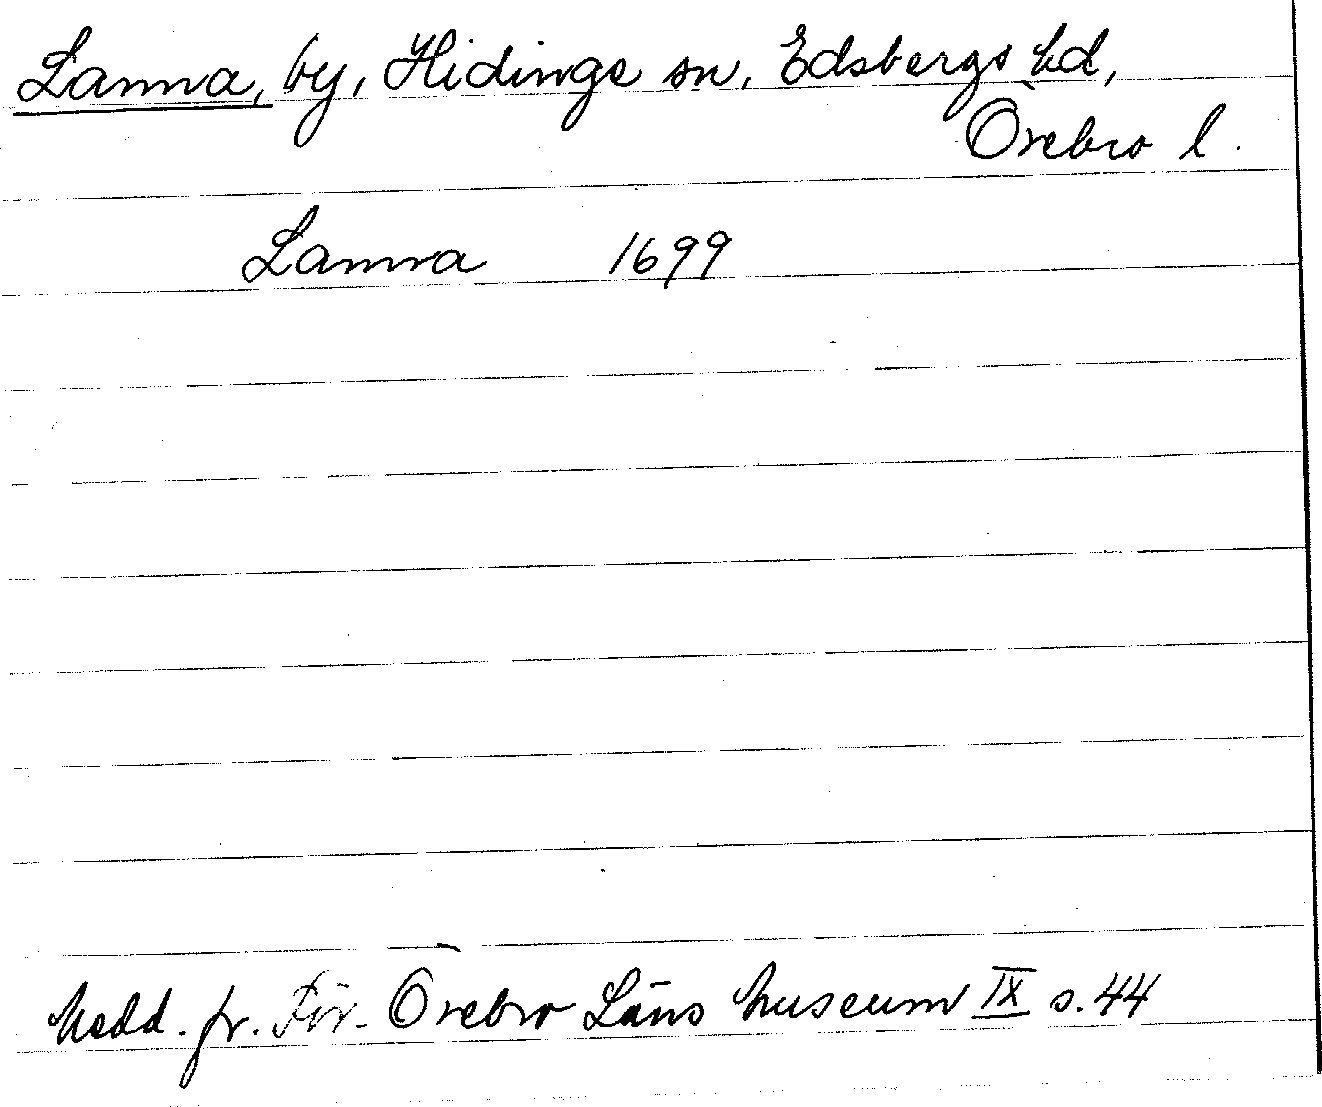 Lanna, by, Hidinge sn, Edsbergs hd,
Örebro l.
Lanna 1699
Medd. fr. För. Örebro Läns Museum IX s. 44